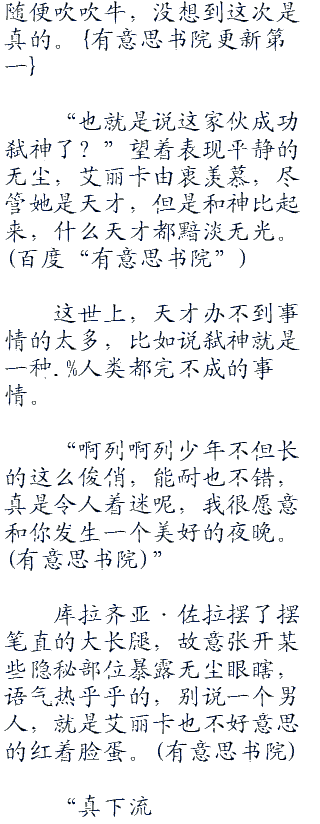 随便吹吹牛，没想到这次是
真的。{有意思书院更新第
一}
“也就是说这家伙成功
弑神了？”望着表现平静的
无尘，艾丽卡由衷羡慕，尽
管她是天才，但是和神比起
来，什么天才都黯淡无光。
(百度“有意思书院”)
这世上，天才办不到事
情的太多，比如说弑神就是
一种.%人类都完不成的事
情。
“啊列啊列少年不但长
的这么俊俏，能耐也不错，
真是令人着迷呢，我很愿意
和你发生一个美好的夜晚。
(有意思书院)”
库拉齐亚·佐拉摆了摆
笔直的大长腿，故意张开某
些隐秘部位暴露无尘眼瞎，
语气热乎乎的，别说一个男
人，就是艾丽卡也不好意思
的红着脸蛋。(有意思书院)
“真下流